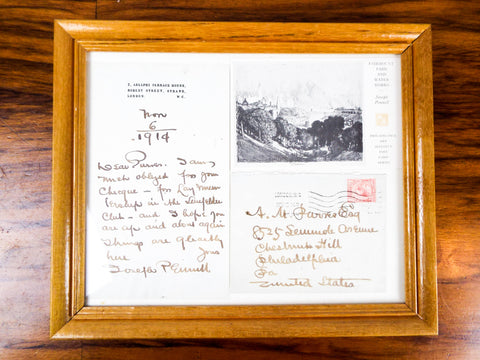 3, ADELPHI TERRACE HOUSE,
ROBERT STREET, STRAND,
LONDON. W.C.
Nov
6
1914
Dear Parris. I am
much obliged for your
cheque – for Lay Mem
bership in the
Club – and I hope you
are up and about again
Things are ghastly
here Yours
Joseph Pennell
FAIRMOUNT
PARK AND
WATER
WORKS
Joseph
Pennell
A. M. Parris Esq
8525 Seminole Avenue
Chestnut Hill
Philadelphia
Pa
United States